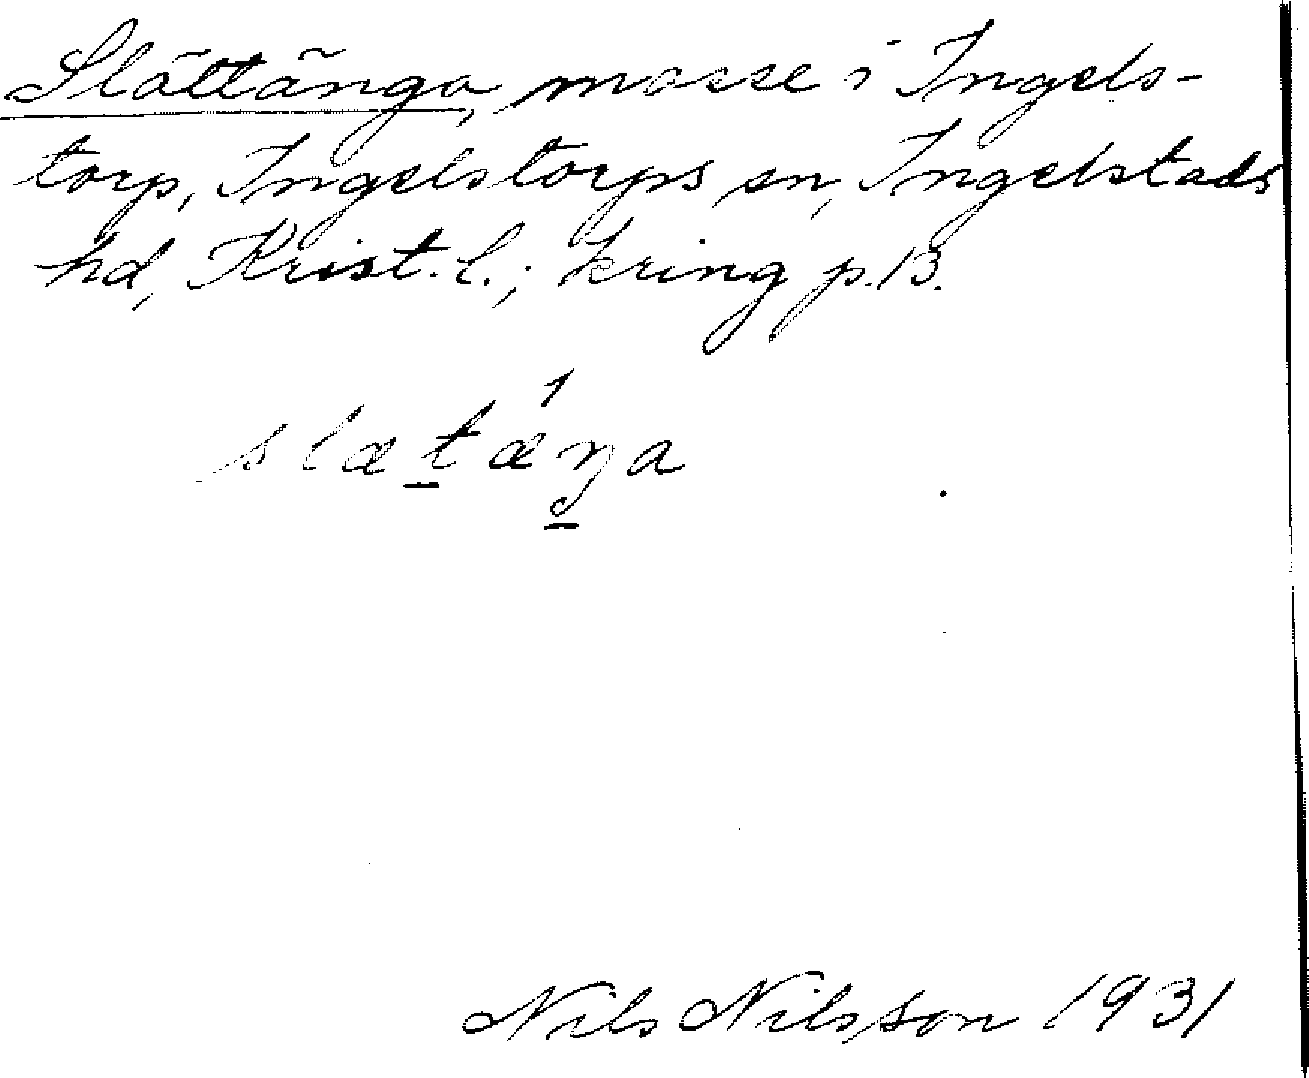 Slättänga, mosse i Ingels-
torp, Ingelstorps sn, Ingelstads
hd, Krist. l.; kring p. 13.
slætæŋa
Nils Nilsson 1931